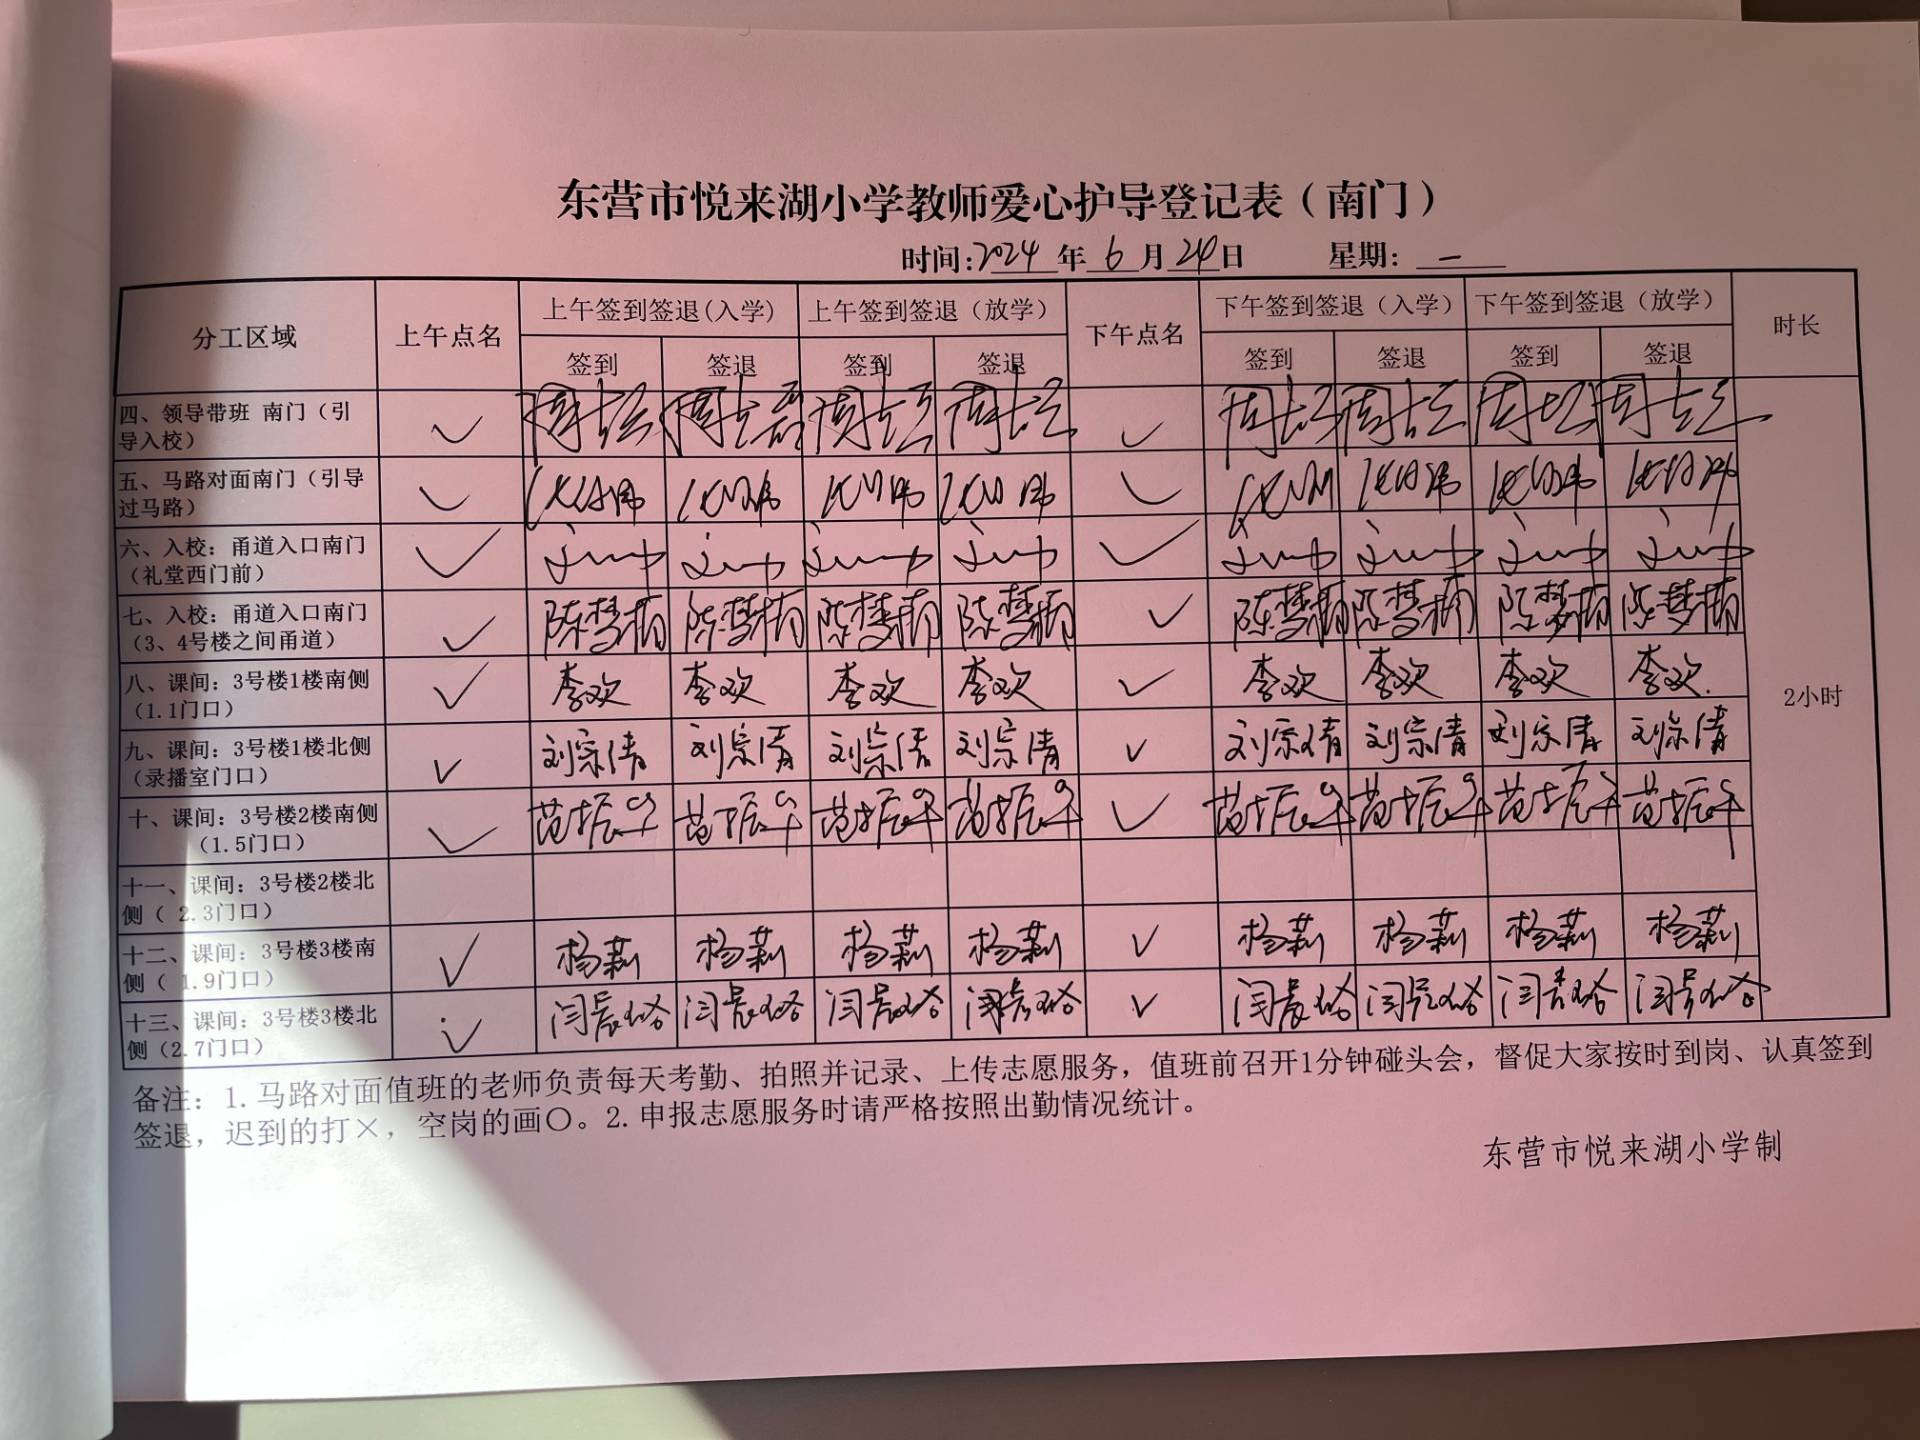 东营市悦来湖小学教师爱心护导登记表（南门）
时间:2024年6月24日 星期:一
分工区域 上午点名 上午签到签退(入学) 上午签到签退（放学） 下午点名 下午签到签退（入学） 下午签到签退（放学） 时长
签到 签退 签到 签退 签到 签退 签到 签退
四、领导带班 南门（引
导入校）
✓ ✓
五、马路对面南门（引导
过马路）
✓ ✓
六、入校：甬道入口南门
（礼堂西门前）
✓ ✓
七、入校：甬道入口南门
（3、4号楼之间甬道）
✓ 陈梦楠 陈梦楠 陈梦楠 陈梦楠 ✓ 陈梦楠 陈梦楠 陈梦楠 陈梦楠
八、课间：3号楼1楼南侧
（1.1门口）
✓ 李欢 李欢 李欢 李欢 ✓ 李欢 李欢 李欢 李欢
2小时
九、课间：3号楼1楼北侧
（录播室门口）
✓ 刘宗倩 刘宗倩 刘宗倩 刘宗倩 ✓ 刘宗倩 刘宗倩 刘宗倩 刘宗倩
十、课间：3号楼2楼南侧
（1.5门口）
✓ 苗振华 苗振华 苗振华 苗振华 ✓ 苗振华 苗振华 苗振华 苗振华
十一、课间：3号楼2楼北
侧（ 2.3门口）
十二、课间：3号楼3楼南
侧（ 1.9门口）
✓ 杨莉 杨莉 杨莉 杨莉 ✓ 杨莉 杨莉 杨莉 杨莉
十三、课间：3号楼3楼北
侧（2.7门口）
✓ ✓
备注：1.马路对面值班的老师负责每天考勤、拍照并记录、上传志愿服务，值班前召开1分钟碰头会，督促大家按时到岗、认真签到
签退，迟到的打×，空岗的画〇。2.申报志愿服务时请严格按照出勤情况统计。
东营市悦来湖小学制